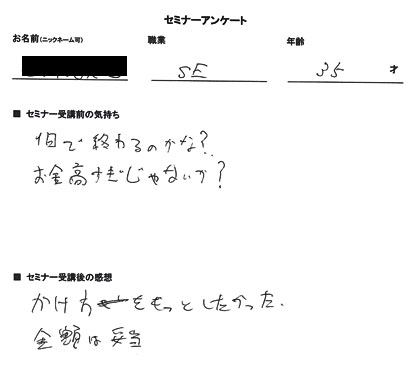 セミナーアンケート
お名前(ニックネーム可) 職業 年齢
SE 35 才
■ セミナー受講前の気持ち
1日で終わるのかな?
お金高すぎじゃないか?
■ セミナー受講後の感想
かけあいをもっとしたかった.
金額は妥当